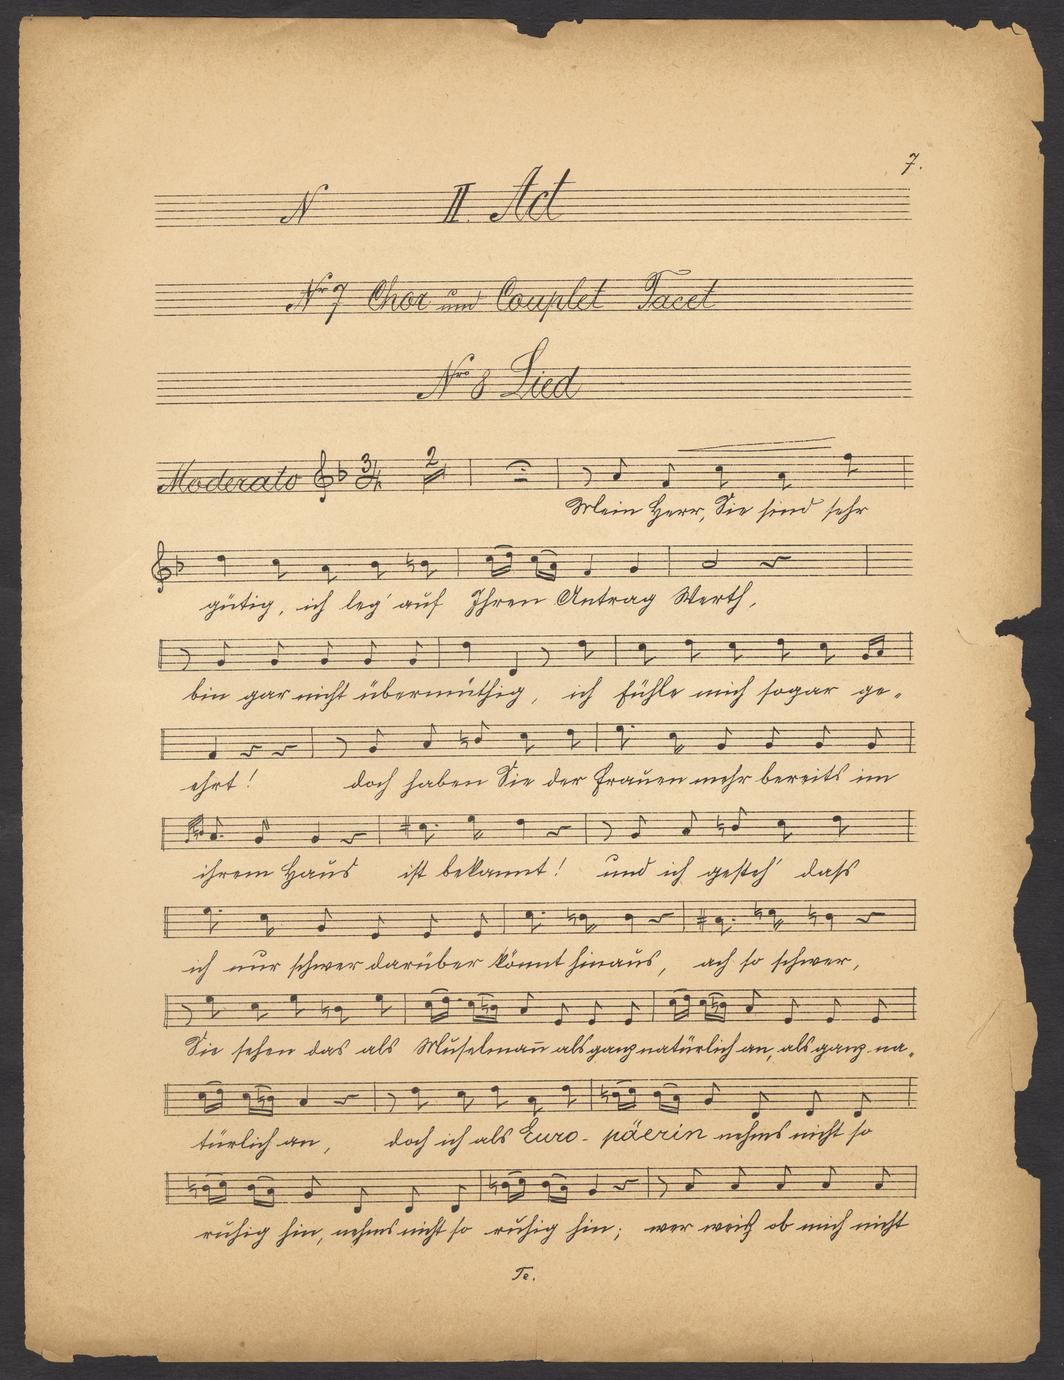 7.
N II. Act
Nr 7 Chor und Couplet Tacet
Nro 8 Lied
Moderato 3/4 2
Mein Herr, Sie sind sehr
gütig, ich leg' auf Ihren Antrag Werth,
bin gar nicht übermüthig, ich fühle mich sogar ge-
ehrt! doch haben Sie der Frauen mehr bereits im
ihrem Haus ist bekannt! und ich gesteh' dass
ich nur schwer darüber könnt hinaus, ach so schwer,
Sie sehen das als Muselmañ als ganz natürlich an, als ganz na-
türlich an, doch ich als Euro- päerin nehms nicht so
ruhig hin, nehms nicht so ruhig hin; wer weiß ob mich nicht
Te.